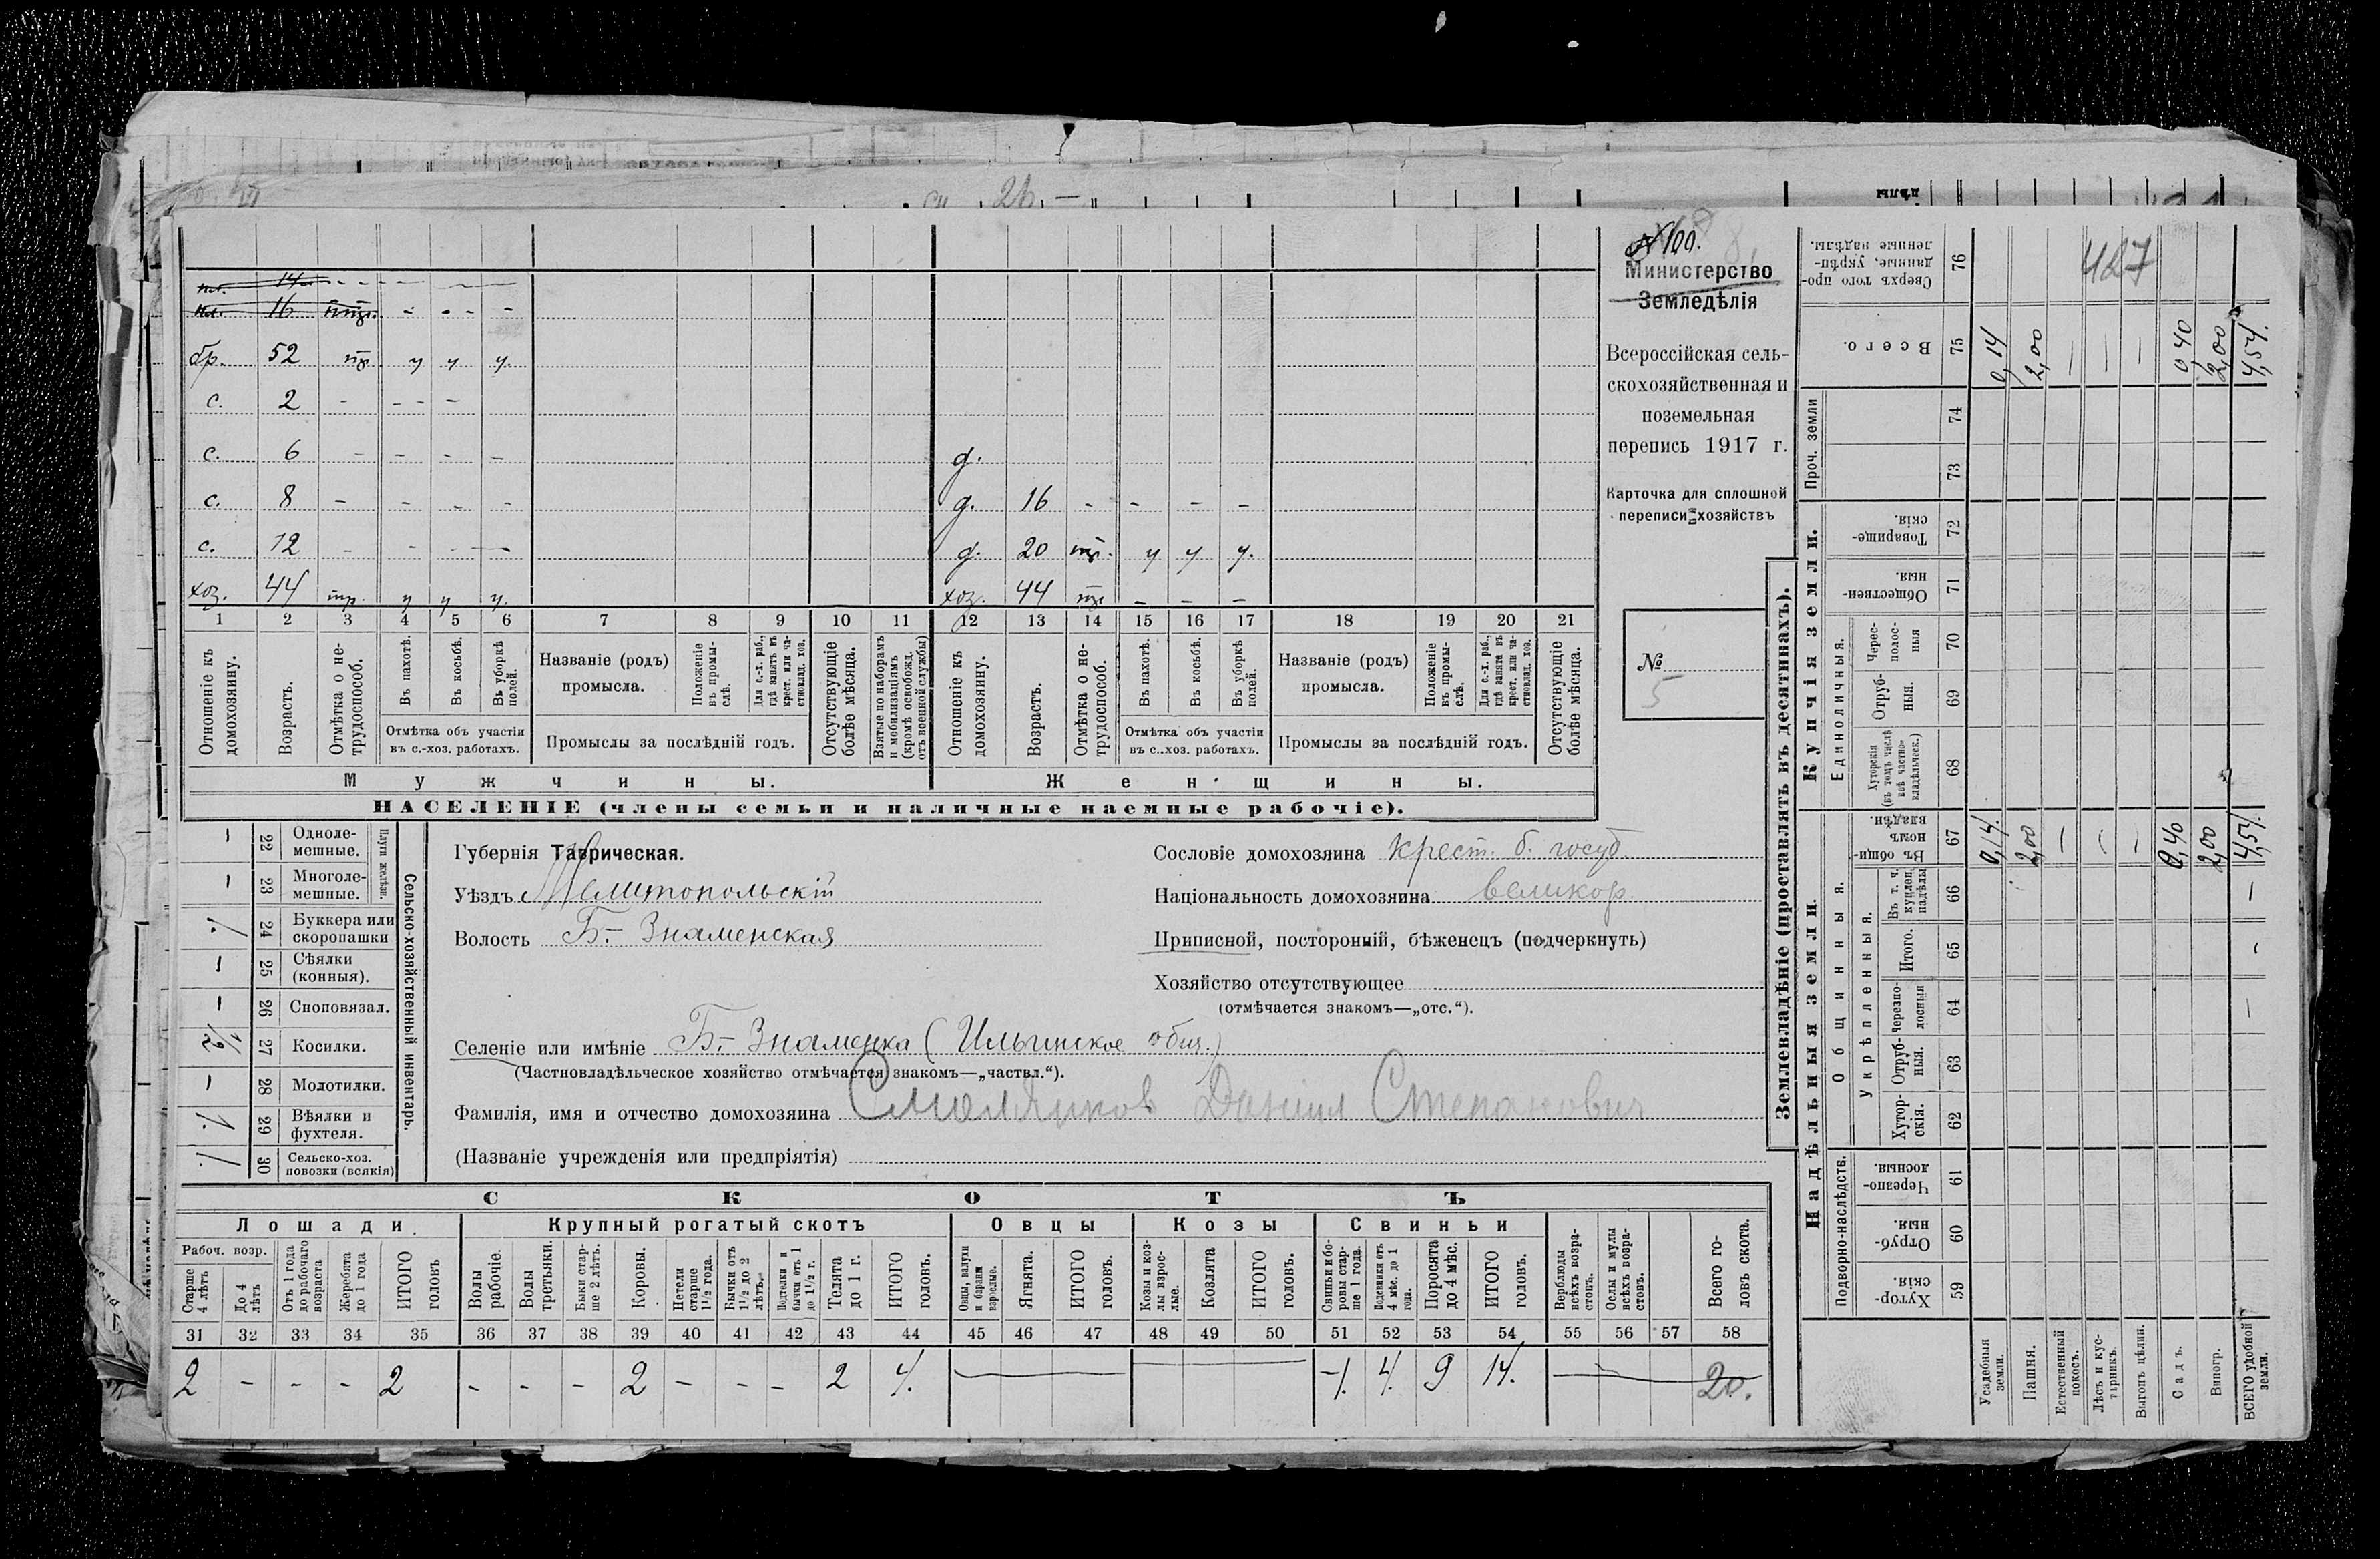 № 100.
Министерство
Земледѣлія
Всероссійская сель-
скохозяйственная и
поземельная
перепись 1917 г.
Карточка для сплошной
переписи хозяйствъ
№
5
14 - - - - -
16 - - - -
бр. 52 тр. у у у.
с. 2 - - - -
с. 6 - - - - д.
с. 8 - - - - д. 16 - - - -
с. 12 - - - - д. 20 тр. у у у.
хоз. 44 тр. у у у. хоз. 44 - - -
1 2 3 4 5 6 7 8 9 10 11 12 13 14 15 16 17 18 19 20 21
Отношеніе къ домохозяину.
Возрастъ.
Отмѣтка о не-трудоспособ.
Въ пахотѣ.
Въ косьбѣ.
Въ уборкѣ полей.
Отмѣтка объ участіи въ с.-хоз. работахъ.
Названіе (родъ) промысла.
Положеніе въ промы-слѣ.
Для с.-х. раб., гдѣ занятъ въ крест. или ча-стновлад. хоз.
Промыслы за послѣдній годъ.
Отсутствующіе болѣе мѣсяца.
Взятые по наборамъ и мобилизаціямъ (кромѣ освобожд. отъ военной службы)
Отношеніе къ домохозяину.
Возрастъ.
Отмѣтка о не-трудоспособ.
Въ пахотѣ.
Въ косьбѣ.
Въ уборкѣ полей.
Отмѣтка объ участіи въ с..хоз. работахъ.
Названіе (родъ) промысла.
Положеніе въ промы-слѣ.
Для с.-х. раб., гдѣ заняти въ крест. или ча-стновлад. хоз.
Промыслы за послѣдній годъ.
Отсутствующіе болѣе мѣсяца.
Мужчины. Женщины.
НАСЕЛЕНІЕ (члены семьи и наличные наемные рабочіе).
Сельско-хозяйственный инвентарь.
Плуги желѣзн.
- 22 Одноле-мешные.
- 23 Многоле-мешные.
1. 24 Буккера или скоропашки
- 25 Сѣялки (конныя).
- 26 Сноповязал.
1/2 27 Косилки.
- 28 Молотилки.
1. 29 Вѣялки и фухтеля.
1. 30 Сельско-хоз. повозки (всякія)
Губернія Таврическая.
Уѣздъ Мелитопольскій
Волость Б.- Знаменская
Селеніе или имѣніе Б.- Знаменка (Ильинское общ.)
(Частновладѣльческое хозяйство отмѣчается знакомъ—„частвл.“).
Фамилія, имя и отчество домохозяина Смоляков Данил Степанович
(Названіе учрежденія или предпріятія)
Сословіе домохозяина крест. б. госуд.
Національность домохозяина великор.
Приписной, посторонній, бѣженецъ (подчеркнуть)
Хозяйство отсутствующее
(отмѣчается знакомъ—„отс.“).
СКОТЪ
Лошади Крупный рогатый скотъ Овцы Козы Свиньи
Рабоч. возр.
Старше 4 лѣтъ
До 4 лѣтъ
Отъ 1 года до рабочаго возраста
Жеребята до 1 года
ИТОГО головъ
Волы рабочіе.
Волы третьяки.
Быки стар-ше 2 лѣтъ.
Коровы.
Нетели старше 1 1/2 года.
Бычки отъ 1 1/2 до 2 лѣтъ.
Подтелки и бычки отъ 1 до 1 1/2 г.
Телята до 1 г.
ИТОГО головъ.
Овцы, валухи и бараны взрослые.
Ягнята.
ИТОГО головъ.
Козы и коз-лы взрос-лые.
Козлята
ИТОГО головъ.
Свиньи и бо-ровы стар-ше 1 года.
Подсвинки отъ 4 мѣс. до 1 года.
Поросята до 4 мѣс.
ИТОГО головъ.
Верблюды всѣхъ возра-стовъ.
Ослы и мулы всѣхъ возра-стовъ.
Всего го-ловъ скота.
31 32 33 34 35 36 37 38 39 40 41 42 43 44 45 46 47 48 49 50 51 52 53 54 55 56 57 58
2 - - - 2 - - - 2 - - - 2 4. 1. 4. 9 14. 20.
Землевладѣніе (проставлять въ десятинахъ).
Надѣльныя земли. Купчія земли. Проч. земли
Подворно-наслѣдств. Общинныя. Единоличныя.
Укрѣпленныя.
Хутор-скія. 59
Отруб-ныя. 60
Черезпо-лосныя. 61
Хутор-скія. 62
Отруб-ныя. 63
Черезпо-лосныя 64
Итого. 65
Въ т. ч. куплен. надѣлы 66
Въ общи-номъ владѣн. 67
Хуторскія (въ томъ числѣ всѣ частно-владѣльческ.) 68
Отруб-ныя. 69
Черес-полос-ныя 70
Обществен-ныя. 71
Товарище-скія. 72
73
74
Всего. 75
Сверхъ того про-данные, укрѣп-ленные надѣлы. 76
427
Усадебныя земли. 0,14. 0,14
Пашня. 2,00 2,00
Естественный покосъ. - -
Лѣсъ и кус-тарникъ. - -
Выгонъ цѣлин. - -
Садъ. 0,40 0,40
Виногр. 2,00 2,00
ВСЕГО удобной земли. - - - 4,54. 4,54.